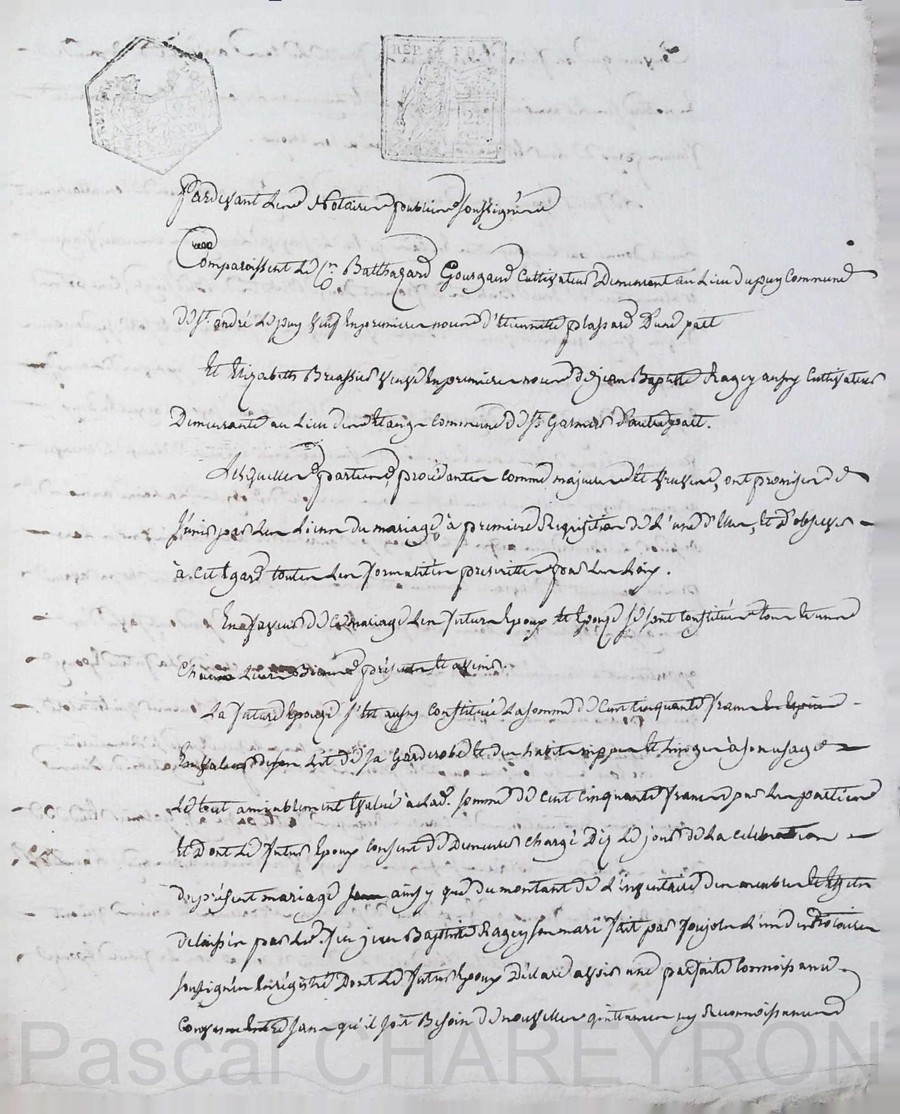 REP. FRA.
Pardevant les Notaires publics soussignés
Comparoissent le Cn. Balthazard Gourgaud Cultivateur Demeurant au Lieu dupuy Commune
de St. andré le puy veuf en premieres noces d'Etiennette plassard D'une part
Et Elizabeth Breassier veuve en premieres noces de jean Baptiste Ragey aussy Cultivateur
Demeurante au Lieu de commune de St. Galmier d'autre part.
Lesquelles parties procédantes comme majeures et veuves, ont promis de
s'unir par les Liens du mariage à premiere Requisition de L'une d'elles, et d'observer
à cet Egard toutes les formalités prescrittes par les Loix.
En faveur de ce mariage les futurs Epoux et Epouse se sont constitués tous et uns
chacuns Leurs Biens présents et avenir.
La future Epouse s'est aussy constituée La somme de Cent Cinquante francs
En valeur de son Lit de sa Garderobe et des habits nippes et Linges à son usage
Le tout amiablement Evalué à Lad. somme de cent cinquante francs par les parties
Et Dont le futur Epoux consent de Demeurer chargé Dès Le jour de La celebration
du présent mariage ainsy que du montant de L'inventaire des meubles et Effets
delaissés par led. feu jean Baptiste Ragey son mari fait par L'un des Notaires
soussignés Enregistré Dont Le futur Epoux Déclare avoir une parfaite Connoissance
sans qu'il soit Besoin de nouvelles quittances ny Reconnoissances
Pascal CHAREYRON